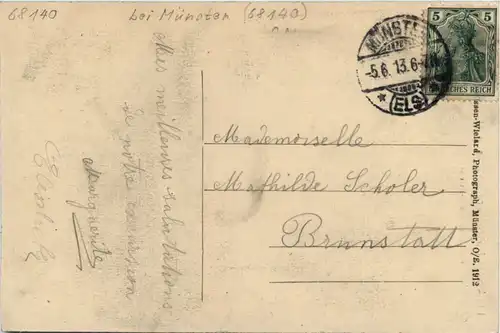 68140
bei Münster (68140)
MÜNST
-5.6.13.6-
* (ELS) *
5 5
CHES REICH
Mes meilleures salutations
de notre excursion
Marguerite
Mademoiselle
Mathilde Scholer
Brunstatt
sen-Wieland, Photograph, Münster, O/E. 1912